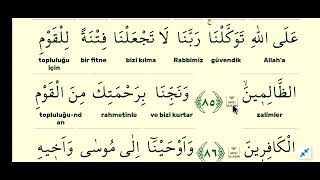 عَلَى اللّٰهِ تَوَكَّلْنَا رَبَّنَا لَا تَجْعَلْنَا فِتْنَةً لِلْقَوْمِ
Allah'a güvendik Rabbimiz bizi kılma bir fitne topluluğu için
الظَّالِمِينَۙ ﴿٨٥﴾ وَنَجِّنَا بِرَحْمَتِكَ مِنَ الْقَوْمِ
zalimler ve bizi kurtar rahmetinle topluluğu-ndan
الْكَافِرِينَ ﴿٨٦﴾ وَاَوْحَيْنَٓا اِلٰى مُوسٰى وَاَخٖيهِ